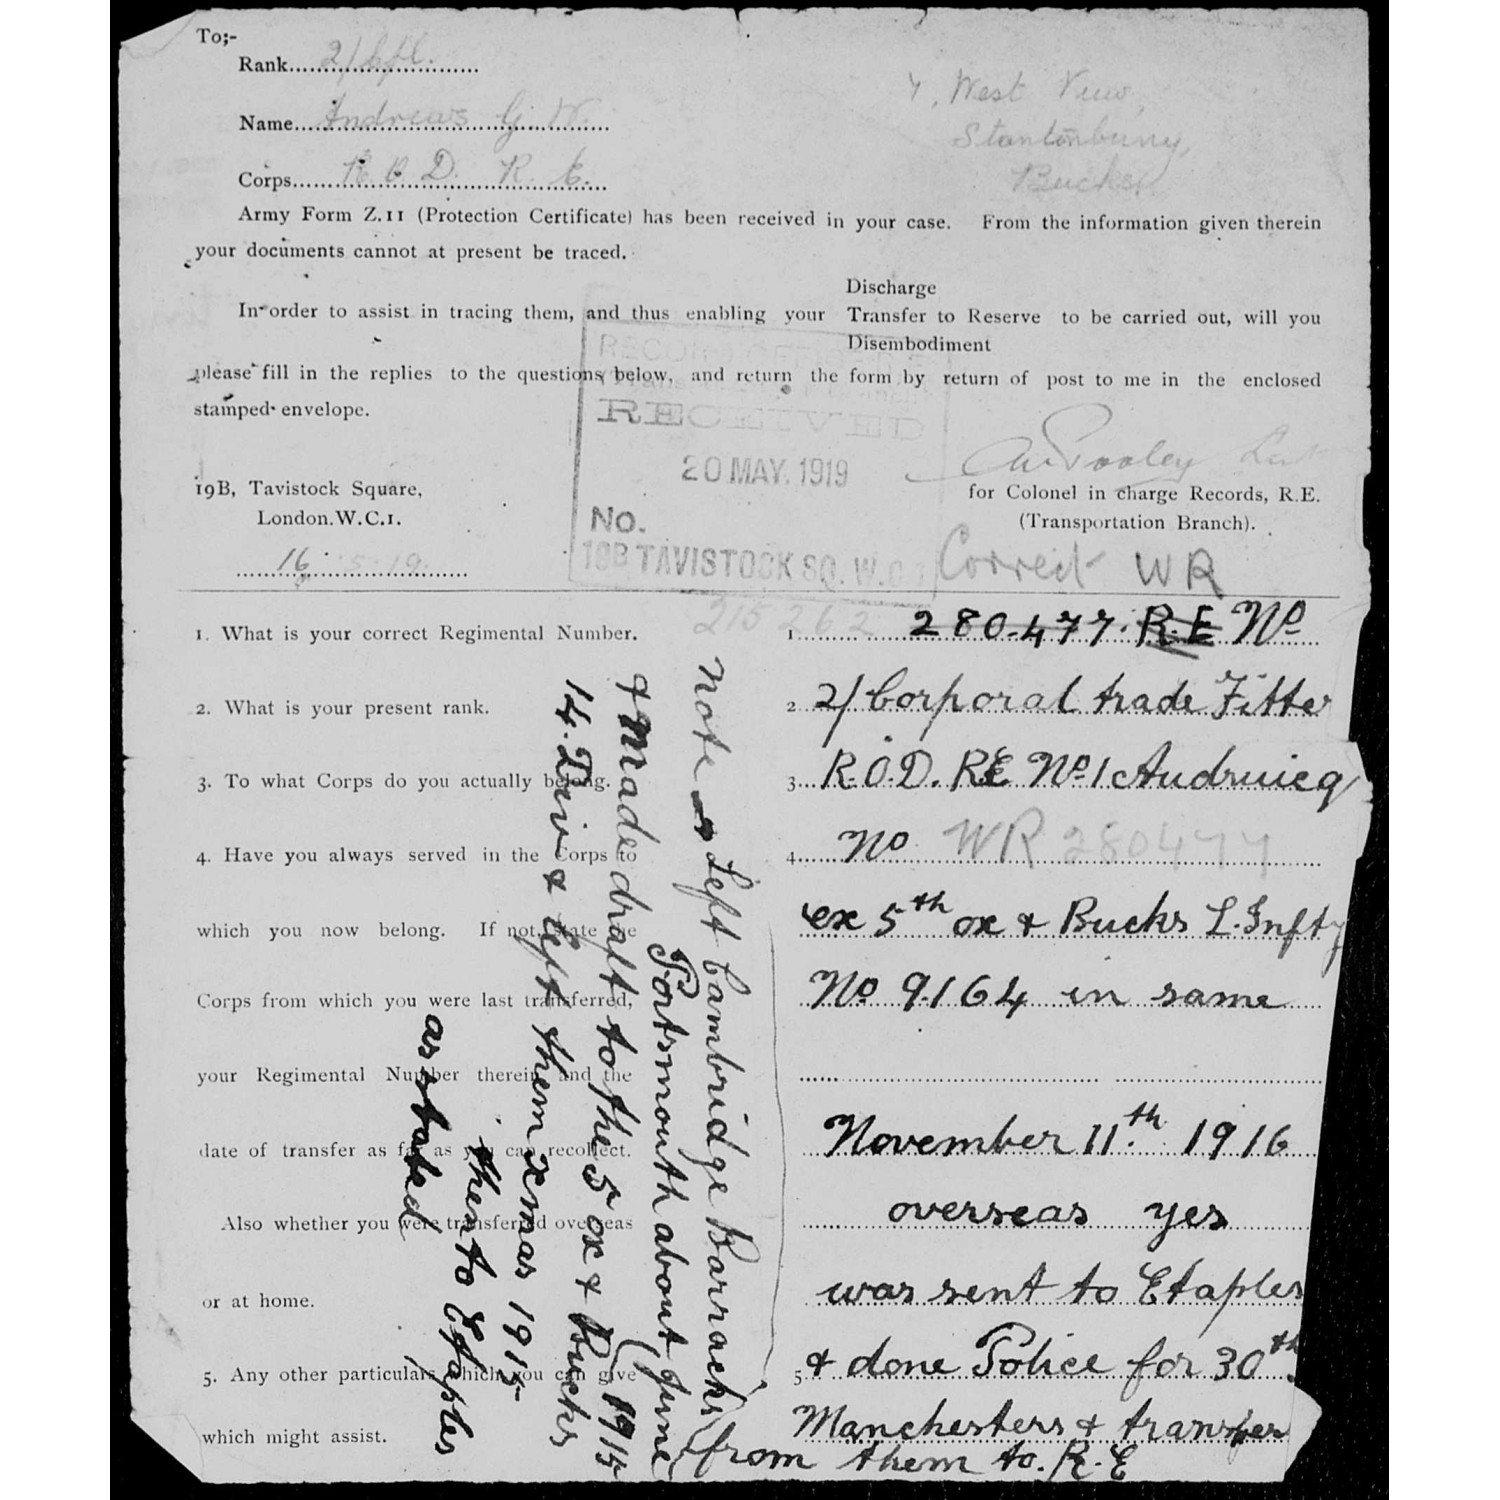 To;-
Rank 2/Cpl.
Name Andrews G. W.
Corps R O D. R. E.
7, West View,
Stantonbury,
Bucks.
Army Form Z.11 (Protection Certificate) has been received in your case. From the information given therein
your documents cannot at present be traced.
Discharge
In order to assist in tracing them, and thus enabling your Transfer to Reserve to be carried out, will you
Disembodiment
please fill in the replies to the questions below, and return the form by return of post to me in the enclosed
stamped envelope.
RECORD OFFICE
RECEIVED
20 MAY. 1919
No.
19B TAVISTOCK SQ. W.C.1
19B, Tavistock Square,
London.W.C.1.
16.5.19.
for Colonel in charge Records, R.E.
(Transportation Branch).
Correct WR
215262
1. What is your correct Regimental Number. 1 280477. R.E No
2. What is your present rank. 2 2/Corporal trade Fitter
3. To what Corps do you actually belong. 3 R.O.D. RE No 1 Audruicq
4. Have you always served in the Corps to 4 No WR 280477
which you now belong. If not, state the ex 5th ox & Bucks L. Infty
Corps from which you were last transferred, No 9164 in same
your Regimental Number therein and the
date of transfer as far as you can recollect. November 11th 1916
Also whether you were transferred overseas overseas yes
or at home. was sent to Etaples
5. Any other particulars which you can give 5 & done Police for 30th
which might assist. Manchesters & transfer
from them to. R.E
Note Left Cambridge Barracks
Portsmouth about June 1915
& Made draft to the 5 ox & Bucks
14. Div & left them xmas 1915
then to Etaples
as stated